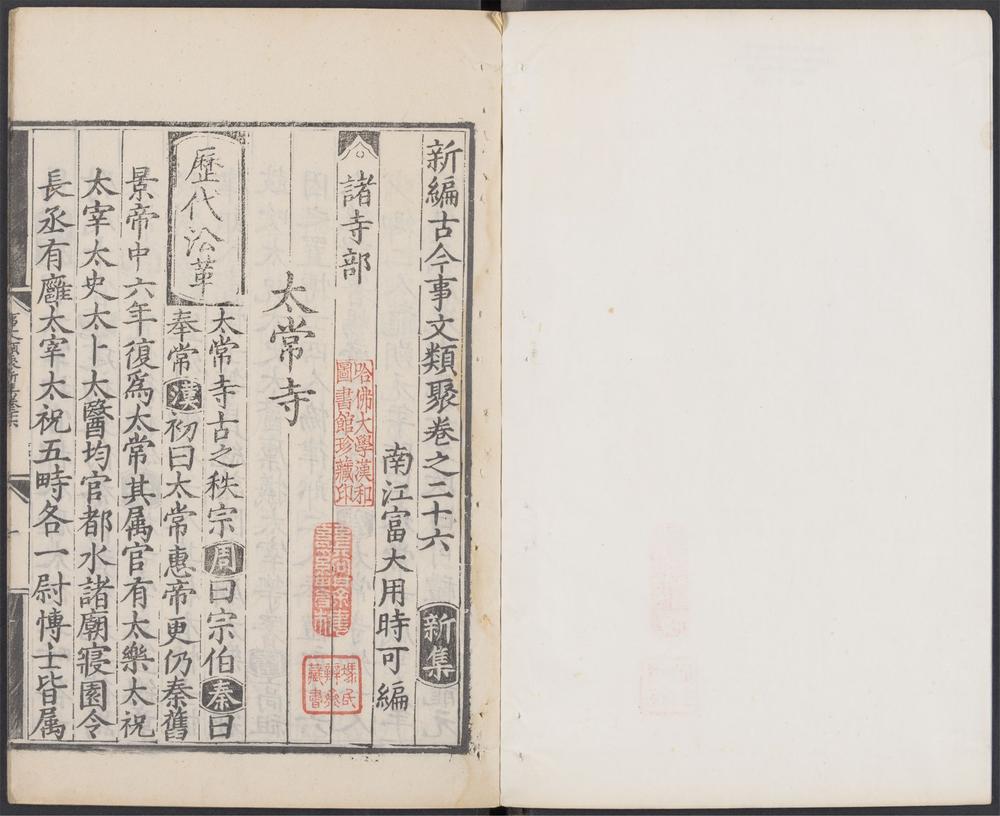 新編古今事文類聚卷之二十六 新集
南江富大用時可編
諸寺部
太常寺
歷代沿革
太常寺古之秩宗周曰宗伯秦曰
奉常漢初曰太常惠帝更仍秦舊
景帝中六年復爲太常其属官有太樂太祝
太宰太史太卜太醫均官都水諸廟寢園令
長丞有廱太宰太祝五畤各一尉愽士皆属
哈佛大學漢和
圖書館珍藏印